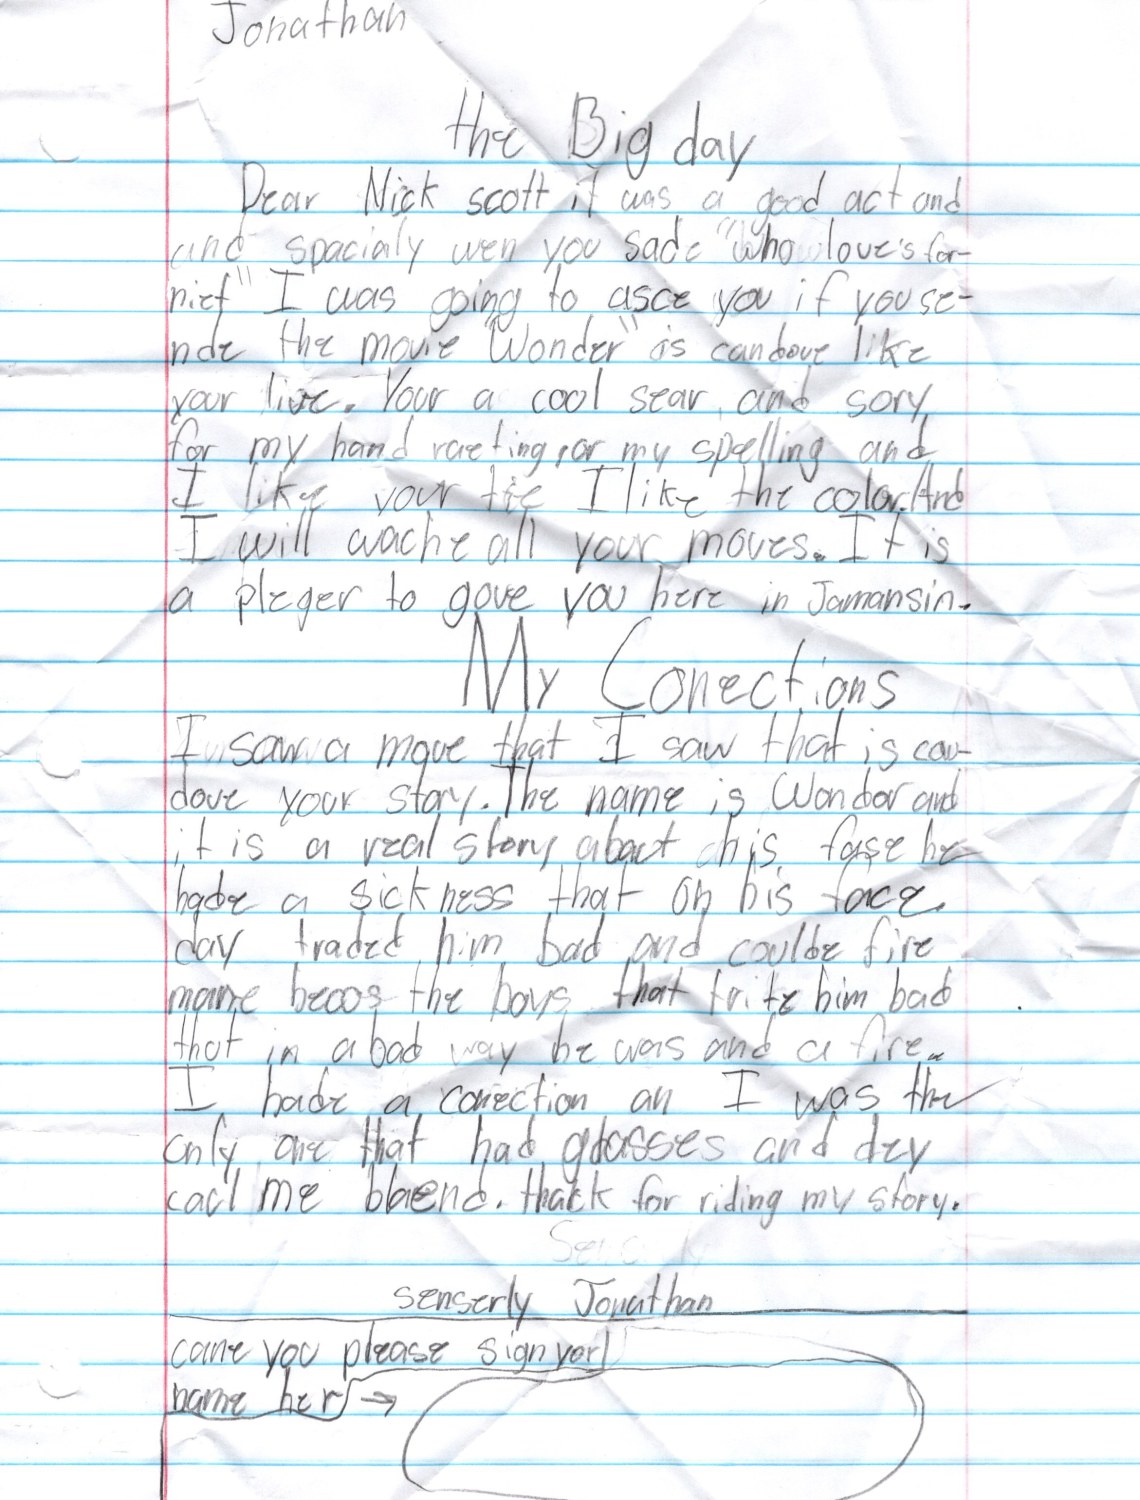 Jonathan
the Big day
Dear Nick scott it was a good act and
and spacialy wen you sade "Who love's for-
niet" I was going to asce you if you se-
nde the movie "Wonder" is candove like
your live. Your a cool sear and sory
for my hand raeting, or my spelling and
I like your tie I like the color. And
I will wache all your moves. It is
a pleger to gove you here in Jamansin.
My Conections
I saw a move that I saw that is can-
dove your story. The name is Wonder and
it is a real story abaut his fase he
hade a sickness that on his face.
day traded him bad and coulde fire
mane becos the boys that trite him bad
that in a bad way he was and a fire.
I hade a conection an I was the
only one that had glasses and dey
cacl me blaend. thack for riding my story.
senserly Jonathan
cane you please sign yor
name her →